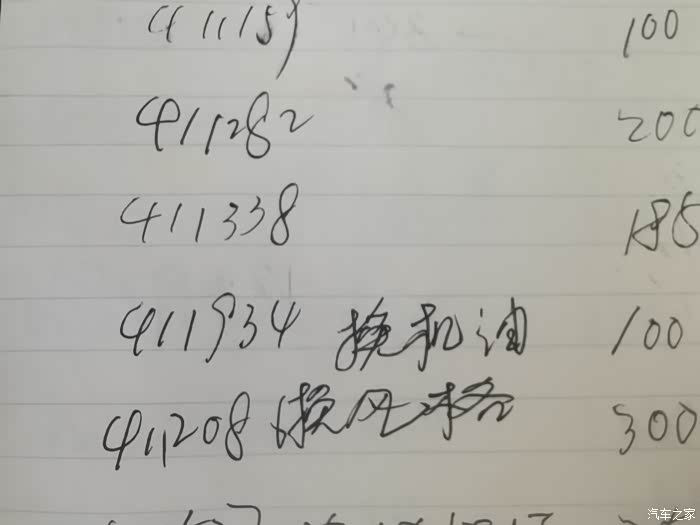 411159 100
411282 200
411338 185
411934 换机油 100
411208 换风格 300
汽车之家